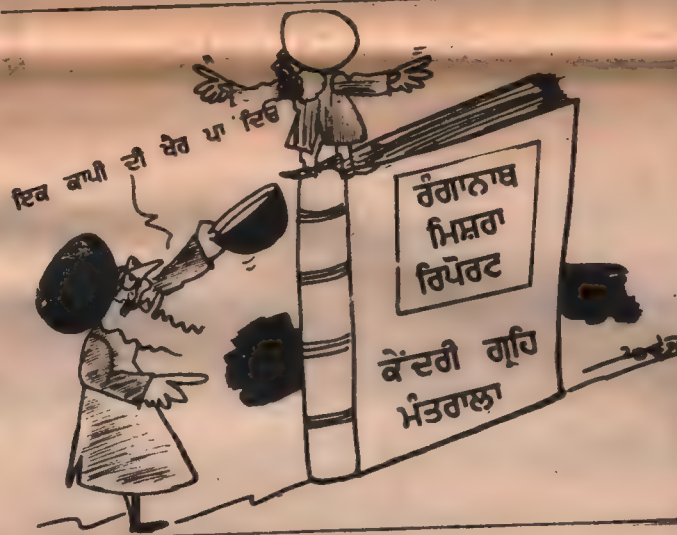 ਇਕ ਕਾਪੀ ਦੀ ਖ਼ੈਰ ਪਾ ਦਿਓ
ਰੰਗਾਨਾਥ
ਮਿਸ਼ਰਾ
ਰਿਪੋਰਟ
ਕੇਂਦਰੀ ਗ੍ਰਹਿ
ਮੰਤਰਾਲਾ